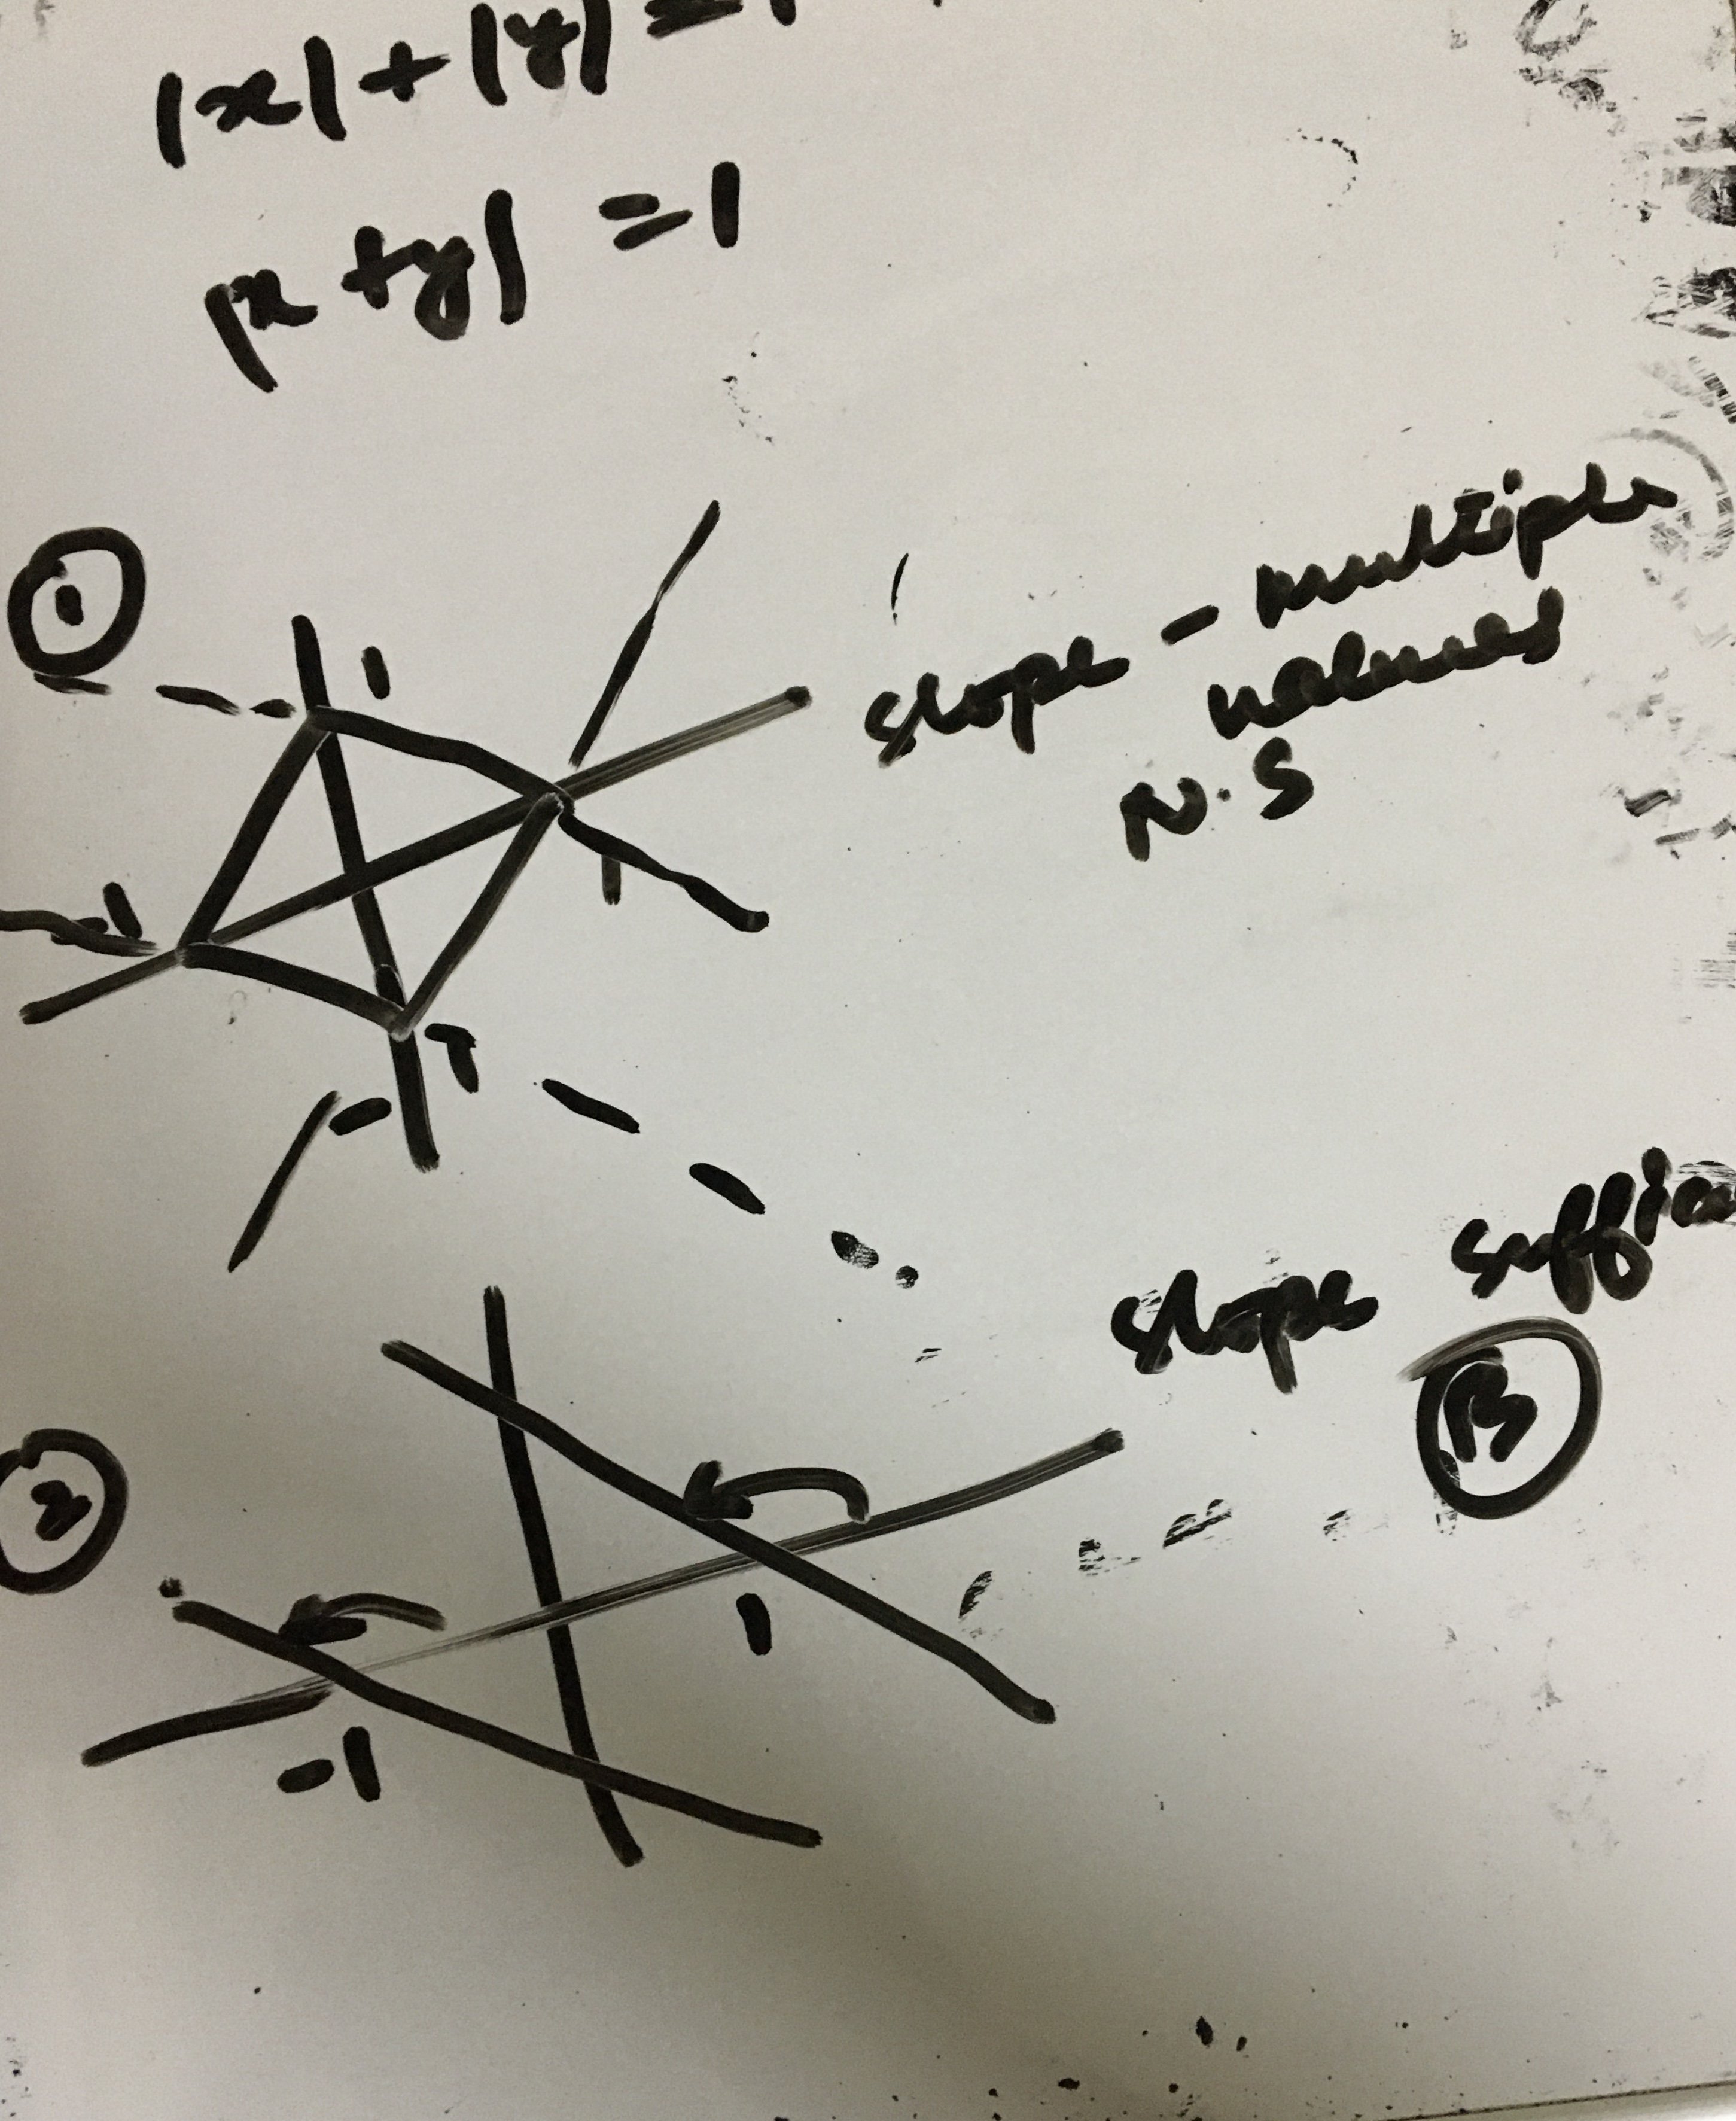 |x| + |y| = 1
|x + y| = 1
1
1
slope - multiple
values
N.S
-1
1
-1
slope suffic
B
2
1
-1